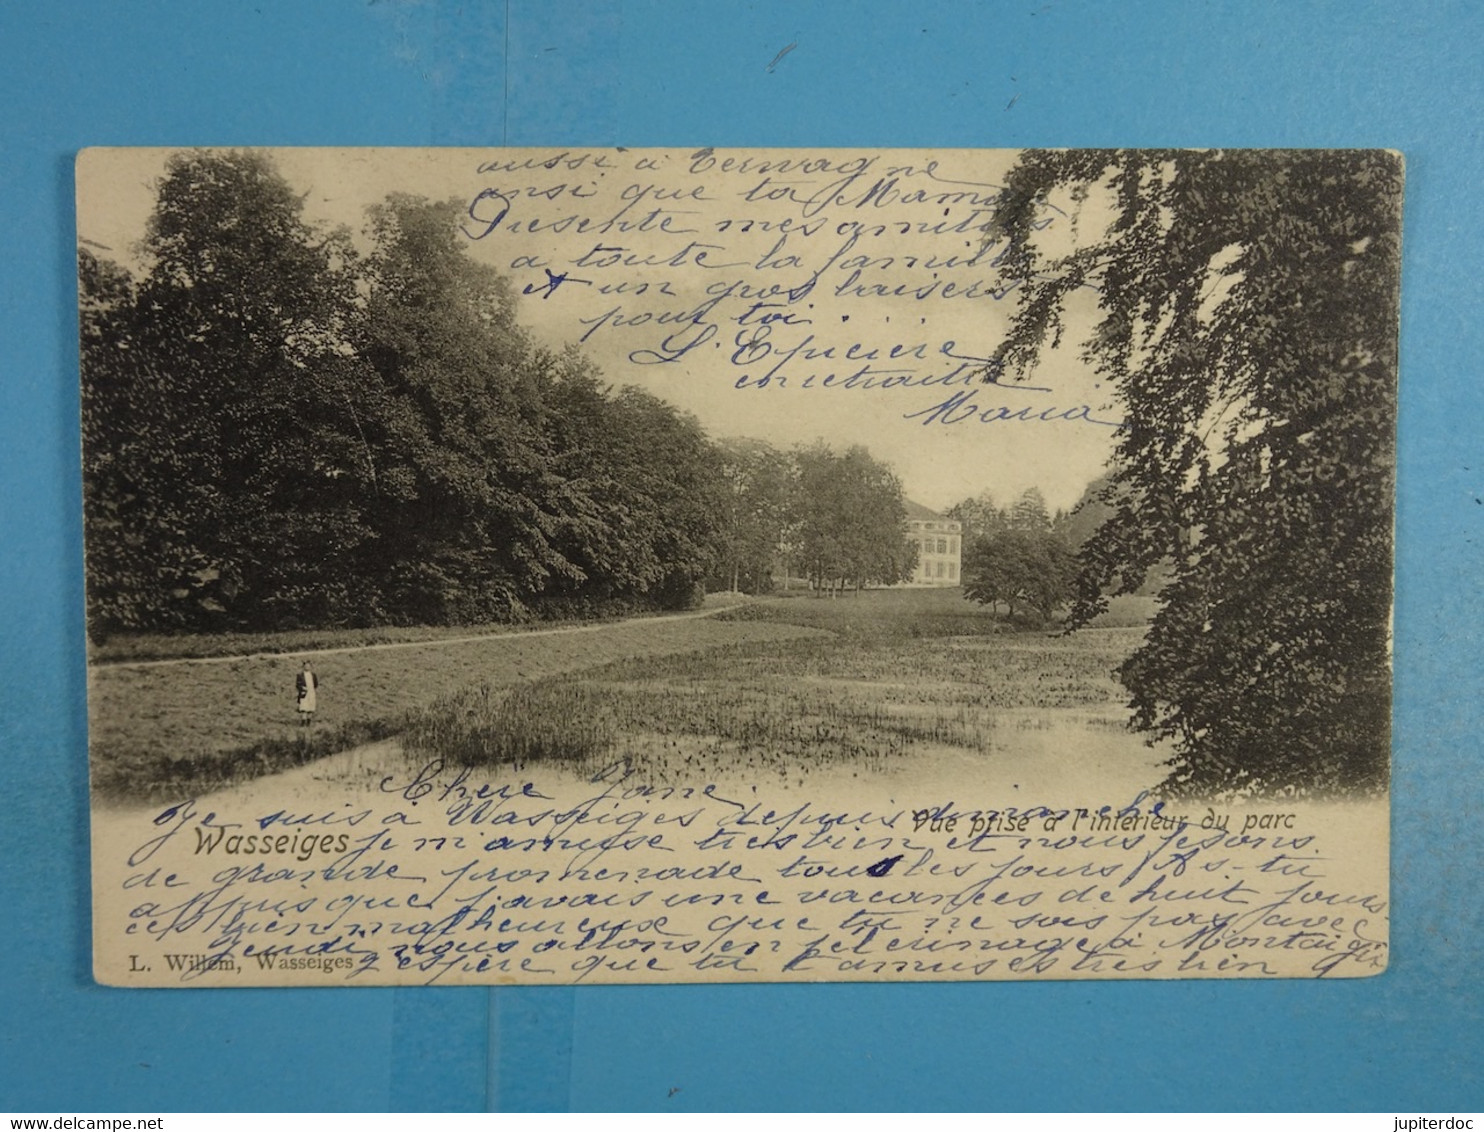 aussi à Tervagne
ainsi que ta Maman
Présente mes amitiés
a toute la famille
et un gros baisers
pour toi.
L'Epicière
en retraite
Maria
Chère Jane
Je suis à Wasseiges depuis dimanche
Wasseiges
Vue prise à l'intérieur du parc
je m'amuse tres bien et nous fesons
de grande promenade tous les jours As-tu
appris que j'avais une vacances de huit jours
c'est bien malheureuse que tu ne sois pas avec
jeudi nous allons en pélerinage à Montaigu
L. Willem, Wasseiges
j'espère que tu t'amuses tres bien
jupiterdoc